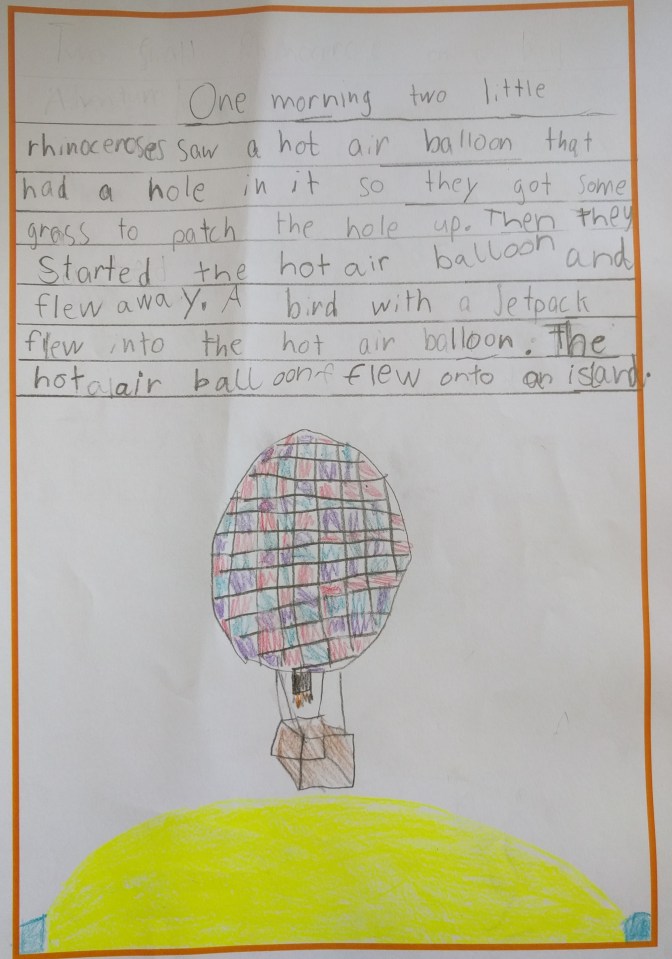 One morning two little
rhinoceroses saw a hot air balloon that
had a hole in it so they got some
grass to patch the hole up. Then they
Started the hot air balloon and
flew away. A bird with a Jetpack
flew into the hot air balloon. The
hot a air balloon flew onto an island.